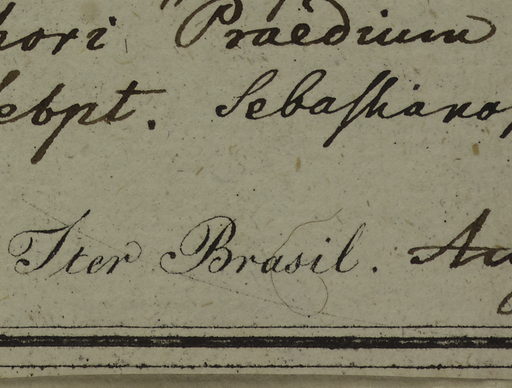 hori Praëdium
Sebastiano
Iter Brasil. Au